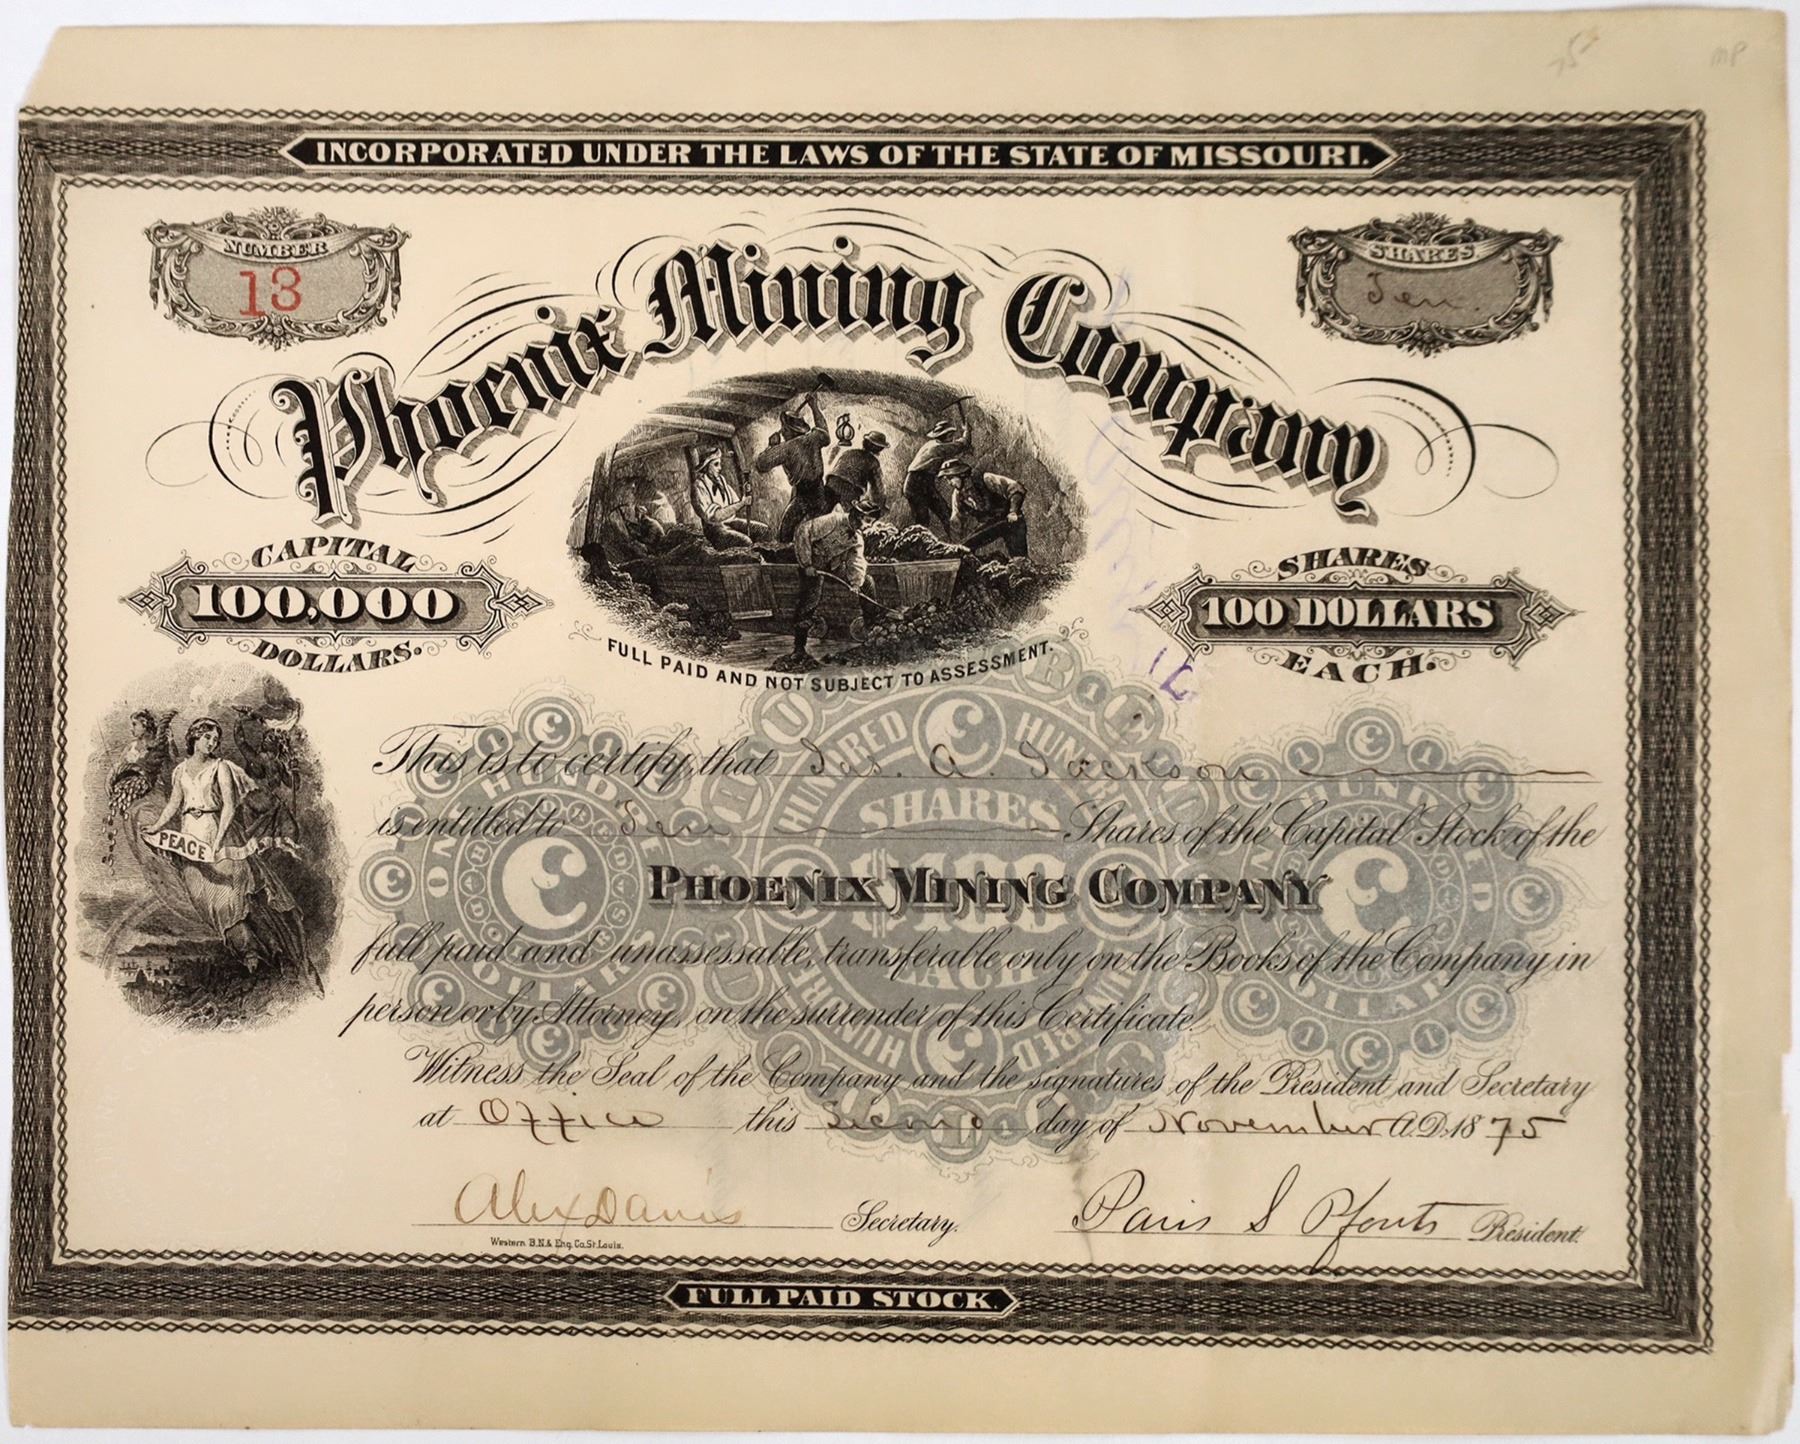 75
MP
INCORPORATED UNDER THE LAWS OF THE STATE OF MISSOURI.
NUMBER
13
SHARES
Ten.
Phoenix Mining Company
CAPITAL
100,000
DOLLARS.
SHARES
100 DOLLARS
EACH.
FULL PAID AND NOT SUBJECT TO ASSESSMENT.
PEACE
This is to certify, that Jas. A. Jackson
is entitled to Ten Shares of the Capital Stock of the
PHOENIX MINING COMPANY
full paid and unassessable, transferable only on the Books of the Company in
person or by Attorney, on the surrender of this Certificate.
Witness the Seal of the Company and the signatures of the President and Secretary
at Office this Second day of November A.D. 1875
Alex Davis Secretary.
Paris S Pfouts President.
Western B.N.& Eng. Co. St. Louis.
FULL PAID STOCK.
ONE HUNDRED DOLLARS
HUNDRED
SHARES
$100
EACH
HUNDRED
ONE HUNDRED DOLLARS